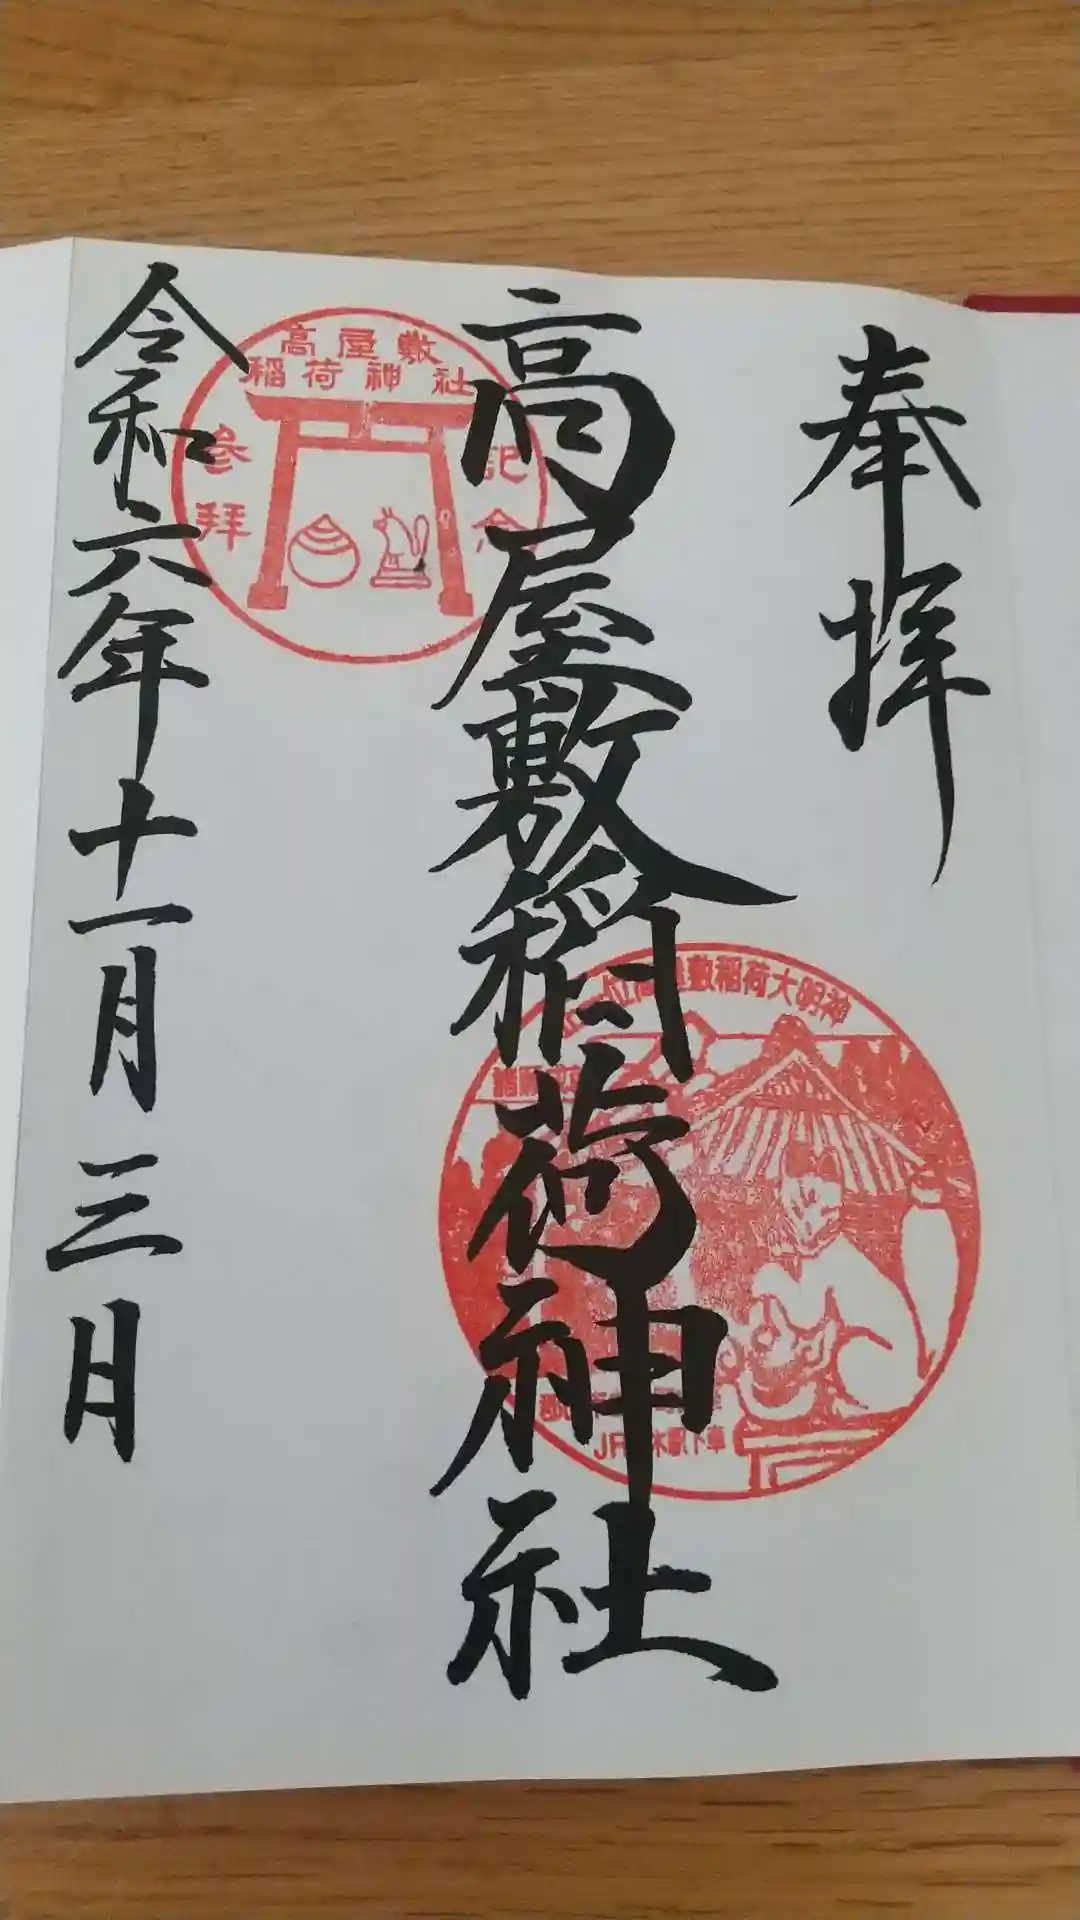 奉拝
高屋敷稲荷神社
令和六年十一月三日
高屋敷
稲荷神社
参拝
記念
敷稲荷大明神
JR
木駅下車